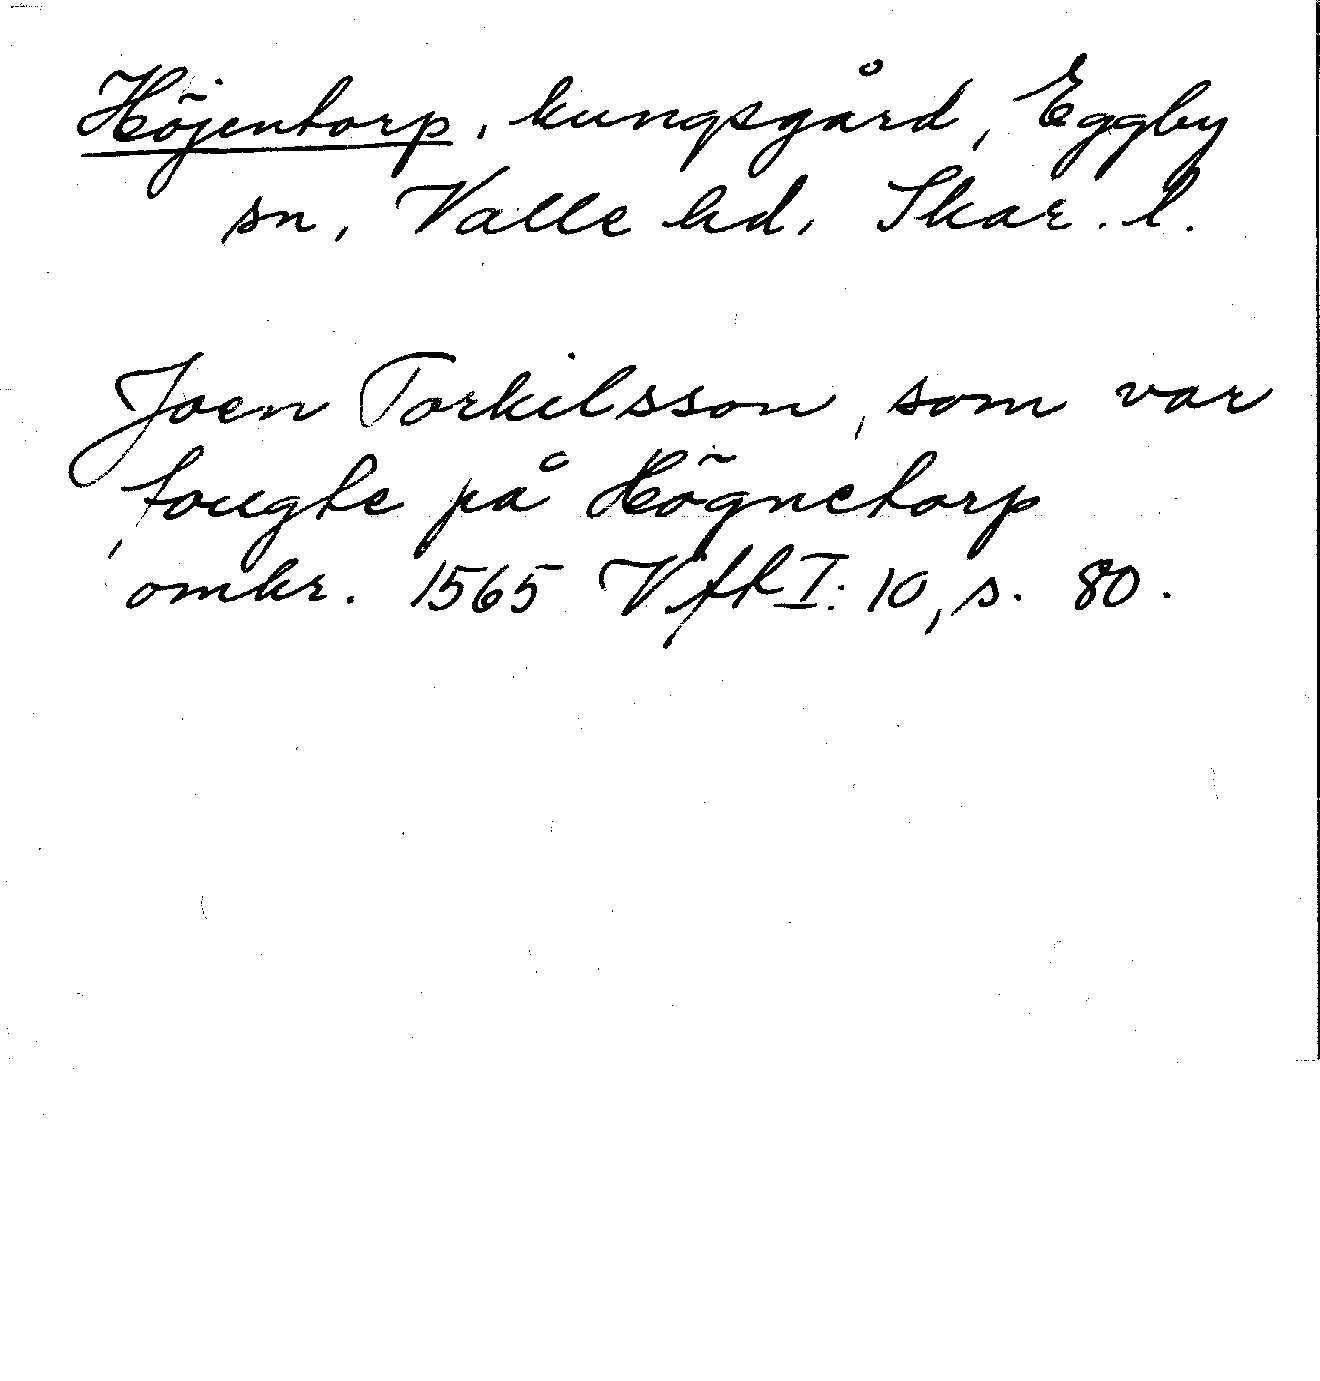 Höjentorp, kungsgård, Eggby
sn, Valle hd, Skar. l.
Joen Torkilsson, som var
fougte på Högnetorp
omkr. 1565 VfhI: 10, s. 80.